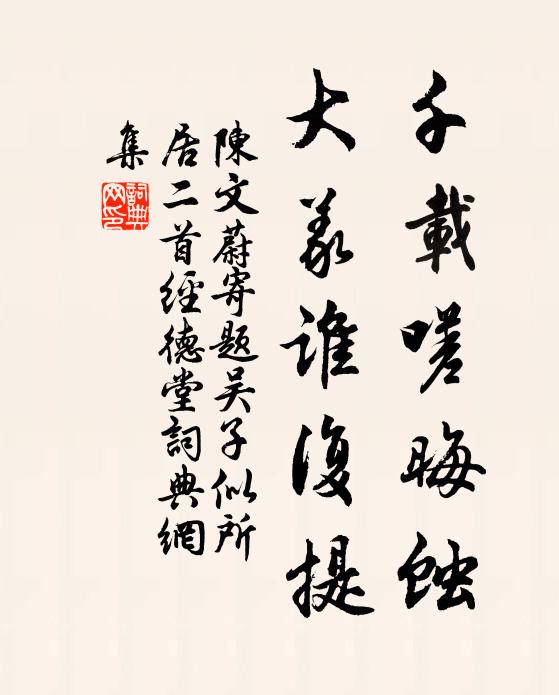 千載嗟晦蝕
大義誰復提
陳文蔚寄題吴子似所
居二首經德堂詞典網
集
詞典網印